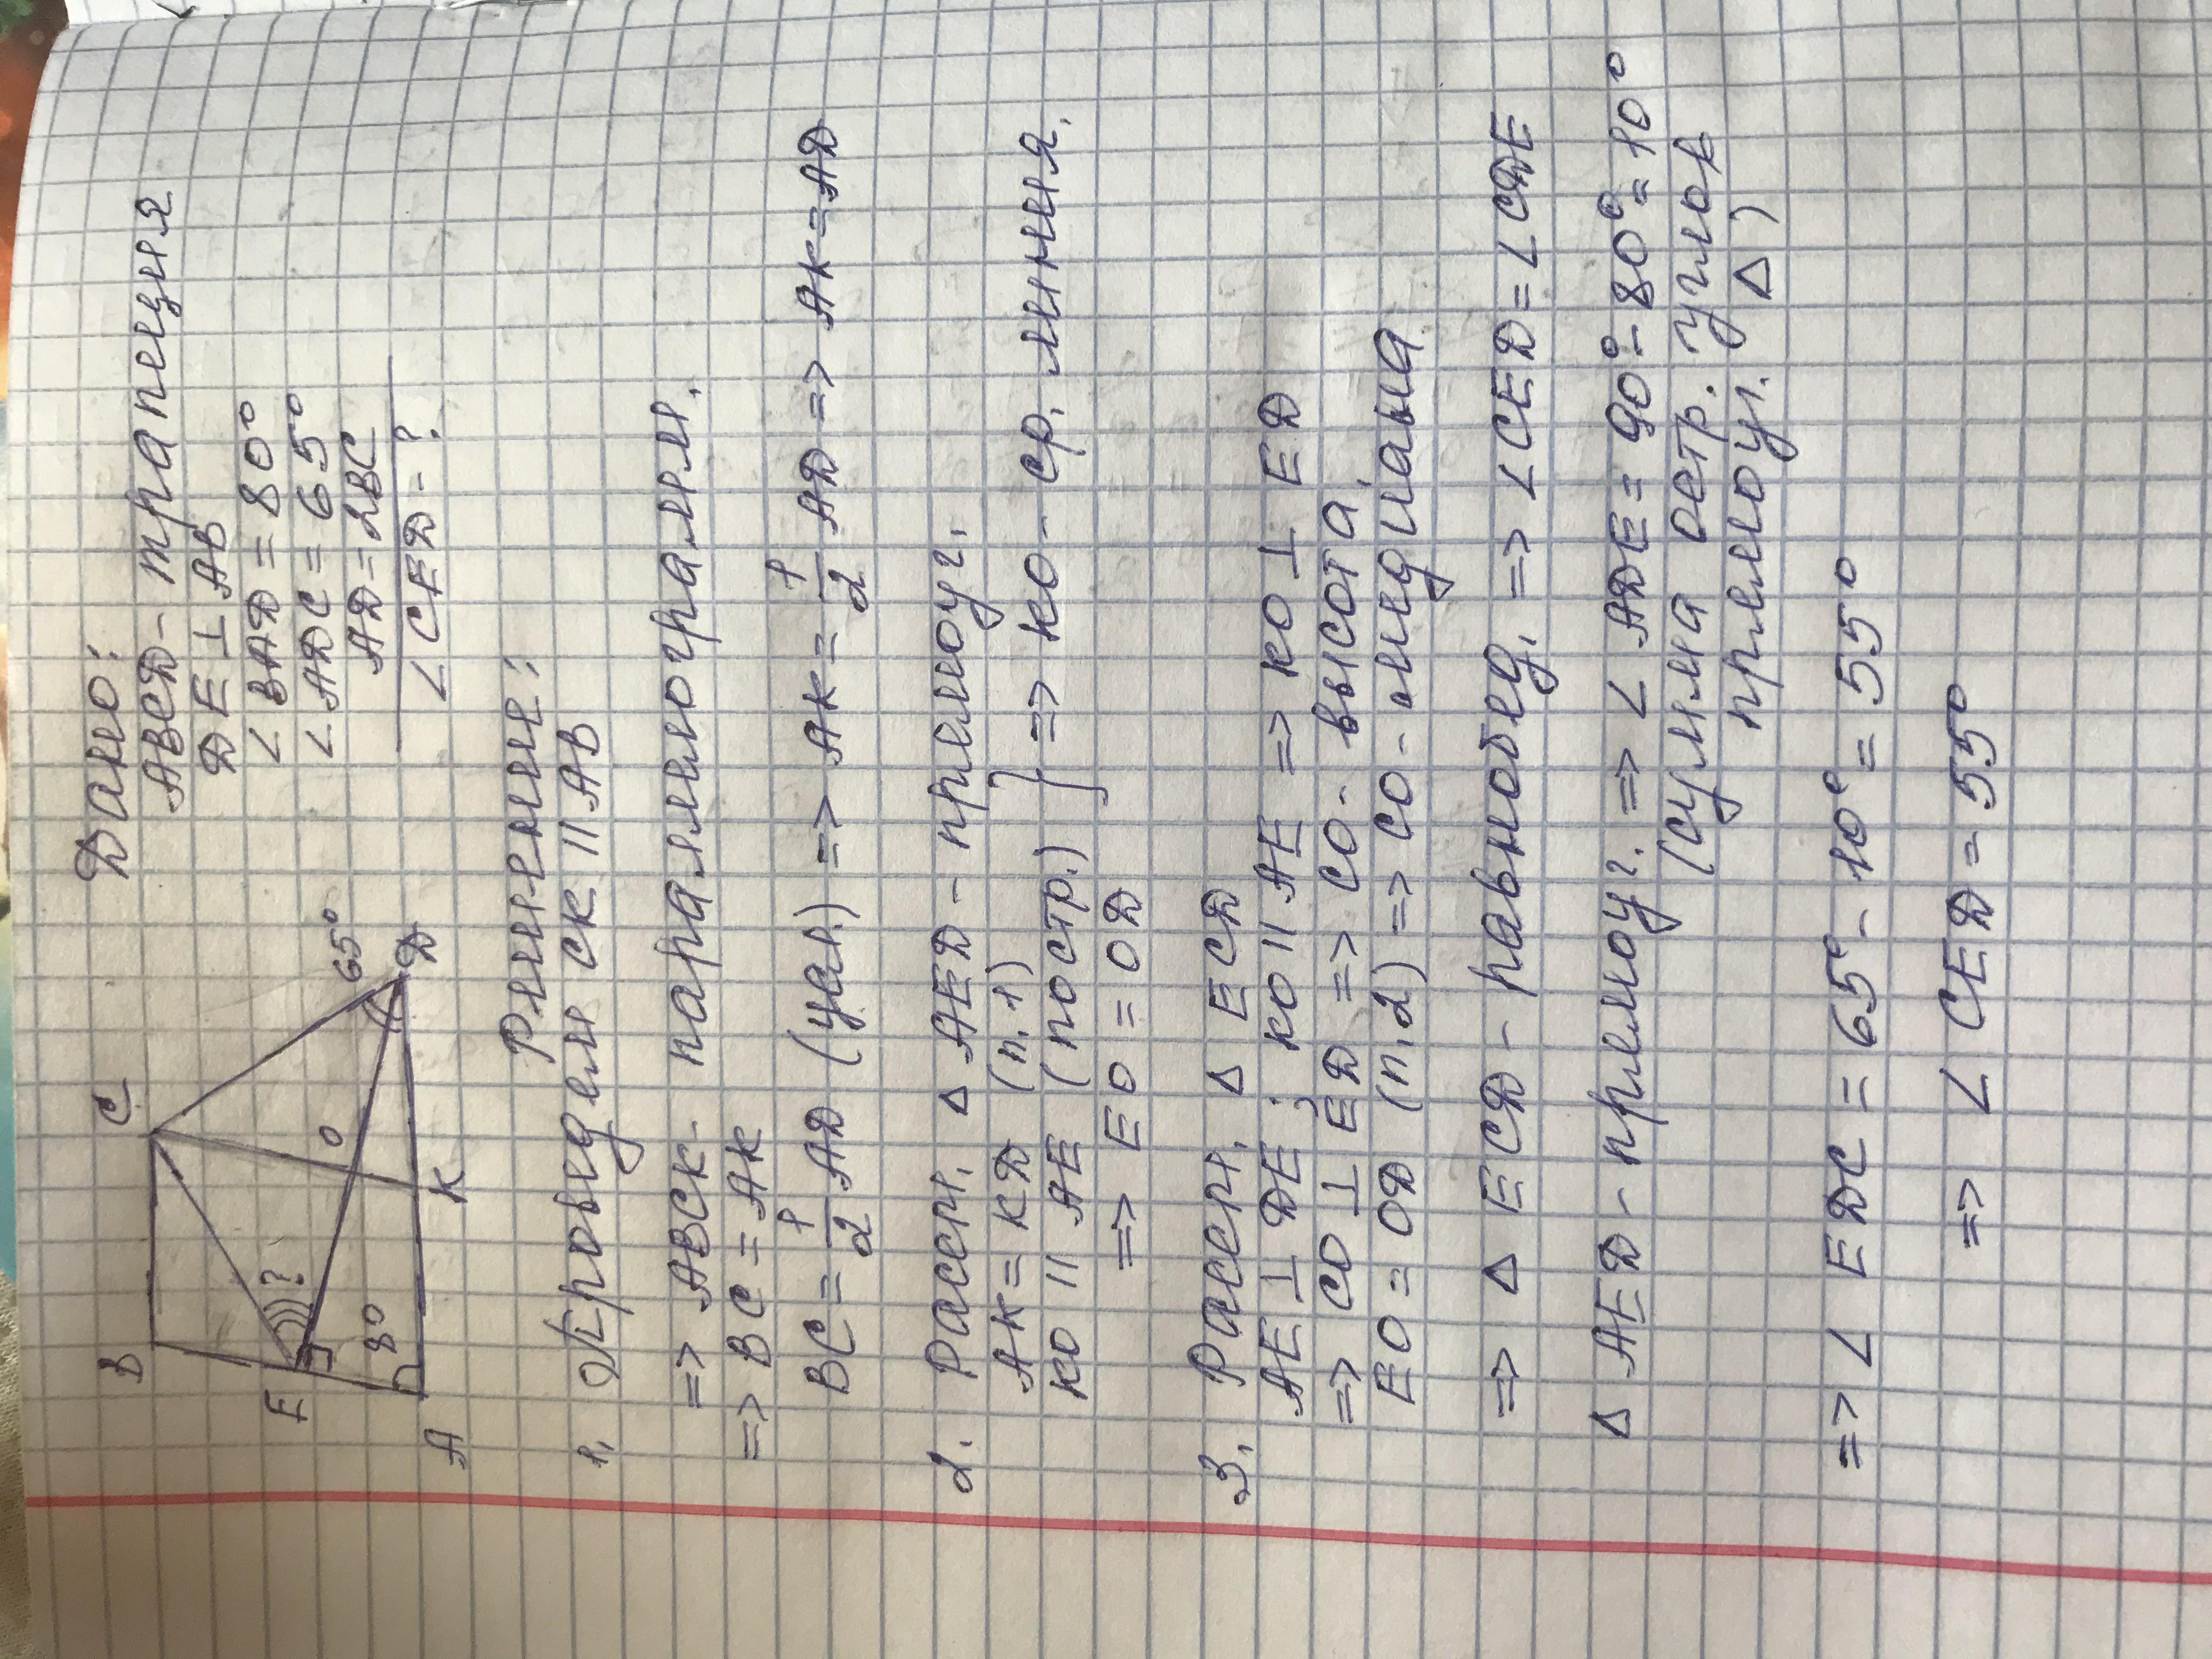 Дано:
ABCD - трапеция
DE ⊥ AB
∠ BAD = 80°
∠ ADC = 65°
AD = 2BC
∠ CED - ?
B
C
E
?
O
65°
D
80
A
K
Решение:
1. Проведем CK || AB
=> ABCK - параллелограмм.
=> BC = AK
BC = 1/2 AD (усл.) => AK = 1/2 AD => AK = AD
2. Рассм. Δ AED - прямоуг.
AK = KD (п.1)
KO || AE (постр.) } => KO - ср. линия.
=> EO = OD
3. Рассм. Δ ECD
AE ⊥ DE; KO || AE => KO ⊥ ED
=> CO ⊥ ED => CO - высота,
EO = OD (п.2) => CO - медиана
=> Δ ECD - равнобед. => ∠ CED = ∠ CDE
Δ AED - прямоуг. => ∠ ADE = 90° - 80° = 10°
(сумма остр. углов
прямоуг. Δ)
=> ∠ EDC = 65° - 10° = 55°
=> ∠ CED = 55°